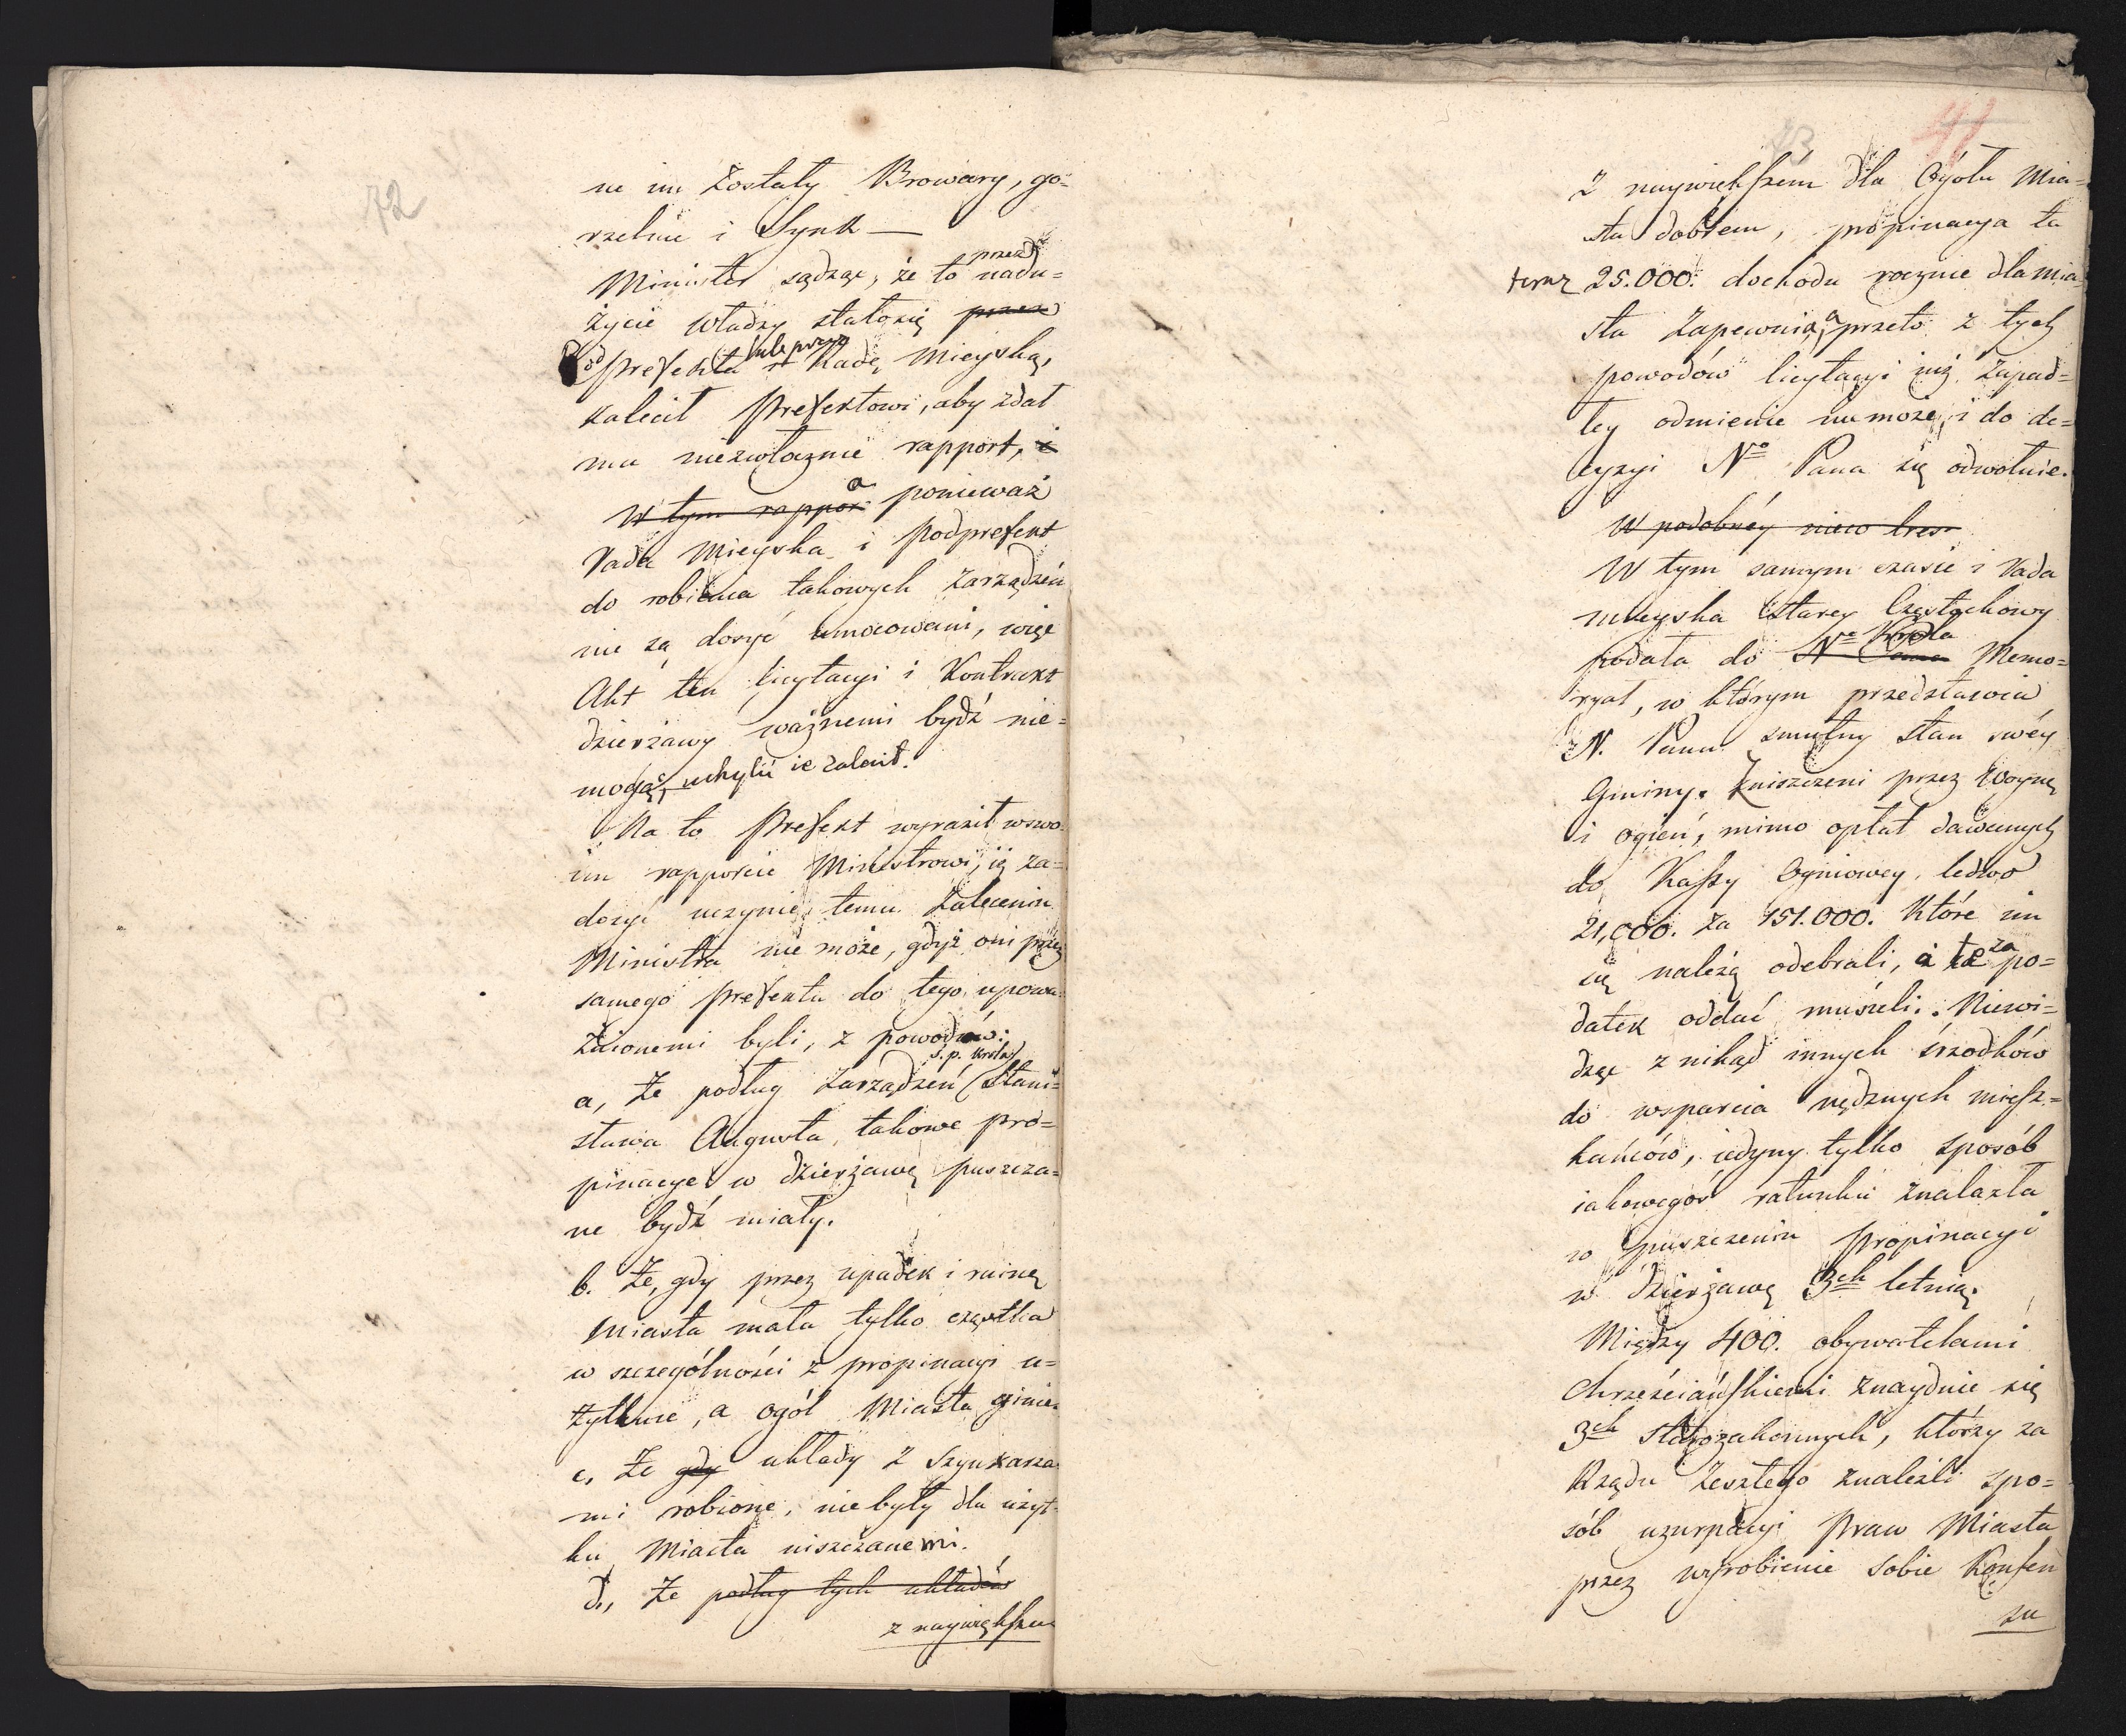 72
ne im zostały Browary, go=
rzelnie i Synk —
przez
Minister sądząc, że to nadu=
życie władzy stało się przez
Podprefekta i Radę Mieyską,
zalecił Prefektowi, aby zdał
mu niezwłocznie rapport, i
w tym rappor a ponieważ
Rada Mieyska i Podprefekt
do robienia takowych zarządzeń
nie są dosyć umocowani, więc
Akt ten licytacyi i Kontrakt
dzierżawy ważnemi bydź nie=
mogą, uchylić ie zalecił.
Na to Prefekt wyraził w swo=
im rapporcie Ministrowi, iż za=
dosyć uczynić temu zaleceniu
Ministra nie może, gdyż oni przez
samego Prefekta do tego upowa=
żnionemi byli, z powodów:
ś.p. Króla
a, Że podług zarządzeń Stani=
sława Augusta, takowe pro=
pinacye w dzierżawę puszcza=
ne bydź miały.
b. Że, gdy przez upadek i ruinę
Miasta mała tylko cząstka
w szczególności z propinacyi u=
żytkuie, a ogół Miasta ginie.
c, Że gdy układy z Szynkarza=
mi robione, nie były dla użyt=
ku Miasta niszczonemi.
d., Że podług tych układów
z naywiększem
73
41
z naywiększém dla Ogółu Mia=
sta dobrem, propinacya ta
teraz 25.000. dochodu rocznie dla mia=
sta zapewnia, a przeto z tych
powodów licytacyi iuż zapad=
łey odmienić nie może, i do de=
cyzyi No Pana się odwołuie.
W podobnéy niew
W tym samym czasie i Rada
mieyska Starey Częstochowy
Króla
podała do No Pana Memo=
ryał, w którym przedstawia
N. Panu smutny stan swéy
Gminy. Zniszczeni przez Woynę
i ogień, mimo opłat dawanych
do Kassy Ogniowey, ledwo
21,000. za 151.000. Które im
się należą odebrali, i te za po=
datek oddać musieli. Niewi=
dząc z nikąd innych śrzodków
do wsparcia nędznych miesz=
kańców, iedyny tylko sposób
iakowegoś ratunku znalazła
w puszczeniu Propinacyi
w dzierżawę 3ch letnią.
Między 400. obywatelami
Chrześciańskiemi znayduie się
3ch Starozakonnych, którzy za
Rządu zeszłego znaleźli spo=
sób uzurpacyi Praw Miasta
przez wyrobienie sobie Konsen
su